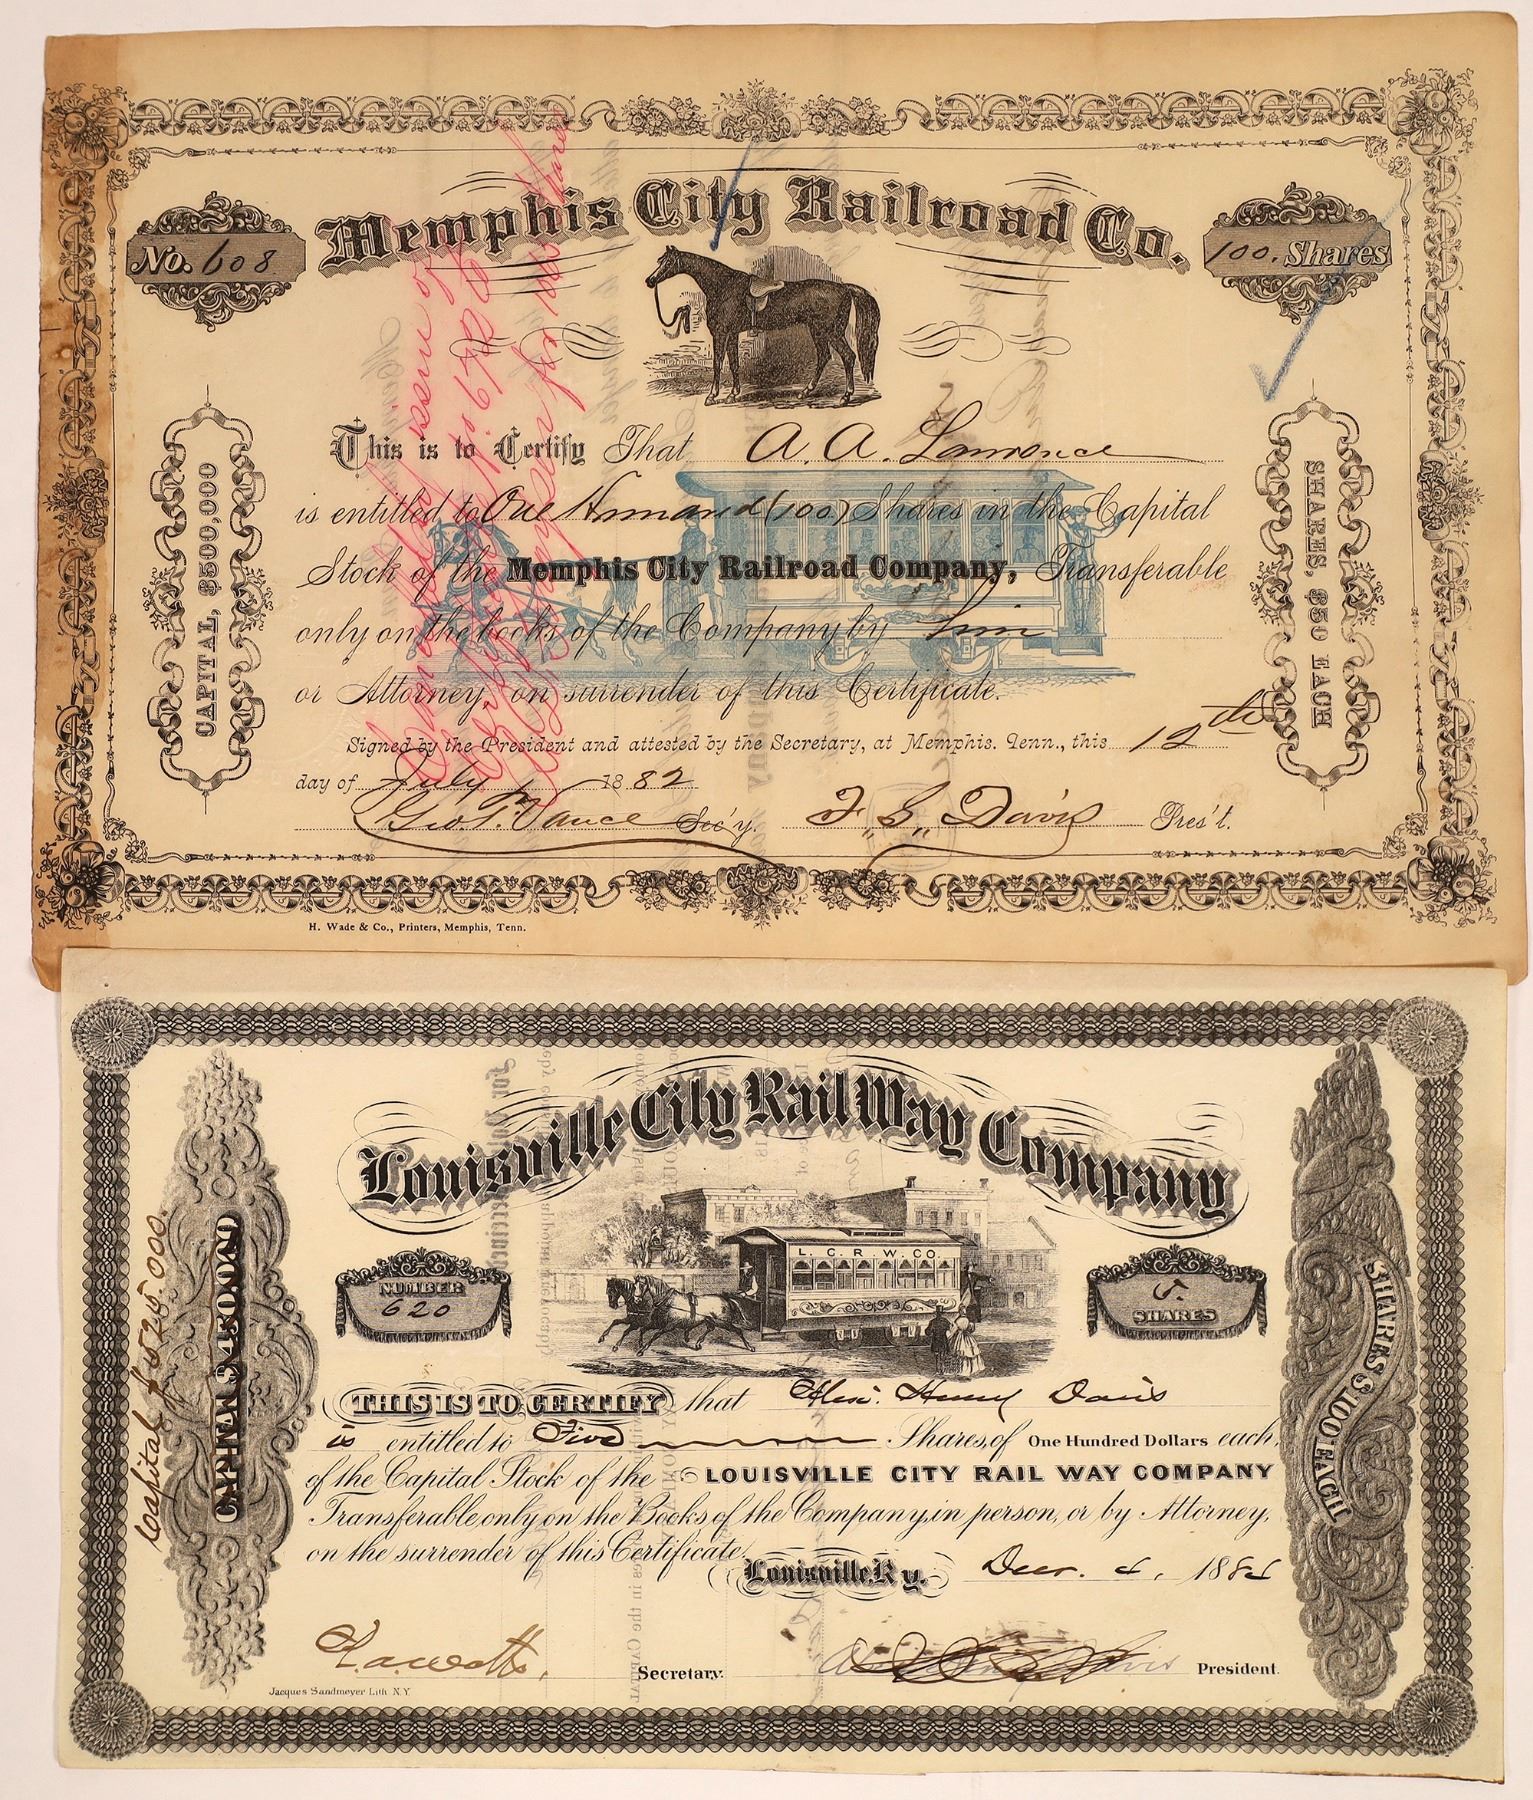 Memphis City Railroad Co.
No. 608
100. Shares
CAPITAL, $500,000
SHARES, $50 EACH
This is to Certify That A. A. Lawrence
is entitled to One Hundred (100) Shares in the Capital
Stock of the Memphis City Railroad Company, Transferable
only on the books of the Company by him
or Attorney, on surrender of this Certificate.
Signed by the President and attested by the Secretary, at Memphis, Tenn., this 12th
day of July 1882
Geo. T. Vance Sec'y. F. S. Davis Pres't.
H. Wade & Co., Printers, Memphis, Tenn.
Louisville City Rail Way Company
L. C. R. W. CO.
NUMBER
620
5.
SHARES
Capital $525.000.
CAPITAL $450.000
SHARES $100. EACH
THIS IS TO CERTIFY that Henry Davis
is entitled to Five Shares, of One Hundred Dollars each,
of the Capital Stock of the LOUISVILLE CITY RAIL WAY COMPANY
Transferable only on the Books of the Company, in person, or by Attorney,
on the surrender of this Certificate.
Louisville, Ky. Decr. 4, 1884
Secretary. President.
Jacques Sandmeyer Lith. N.Y.